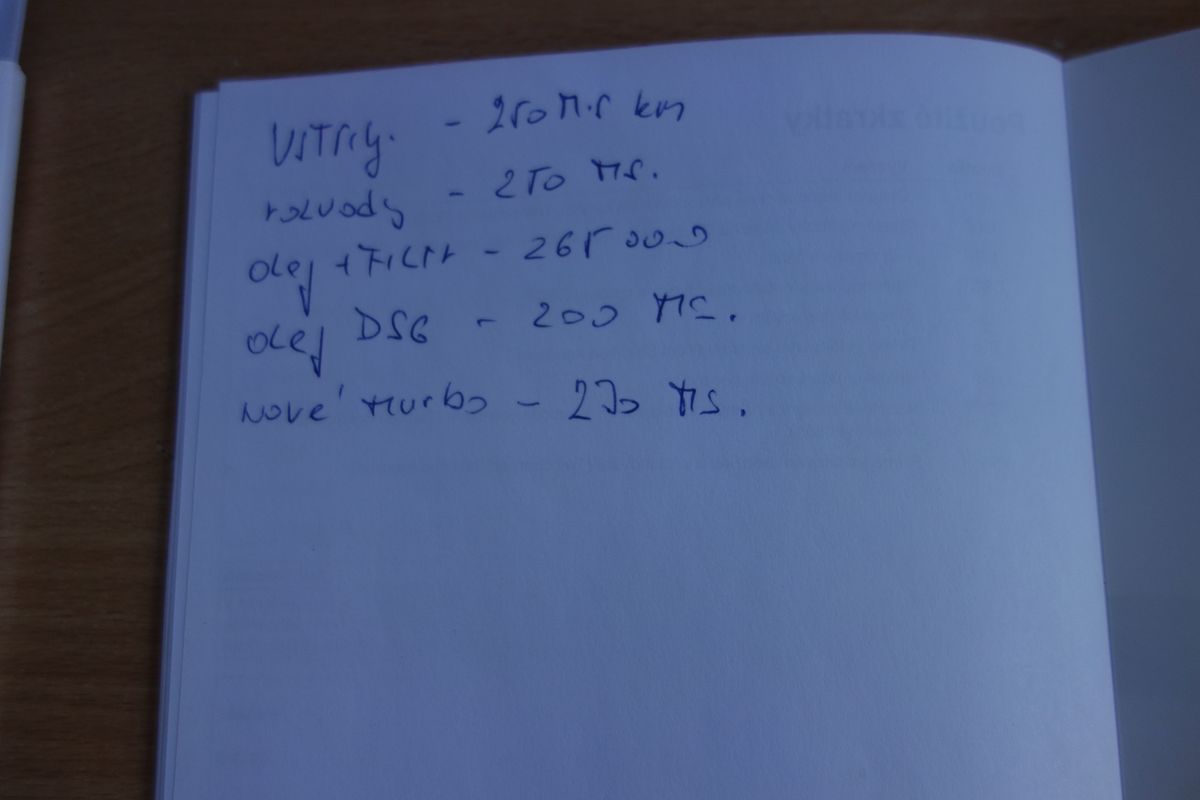 Vstřiky. - 250 tis km
rozvody - 250 tis.
olej + Filtr - 265 000
olej DSG - 200 tis.
nové turbo - 270 tis.
Použité zkratky